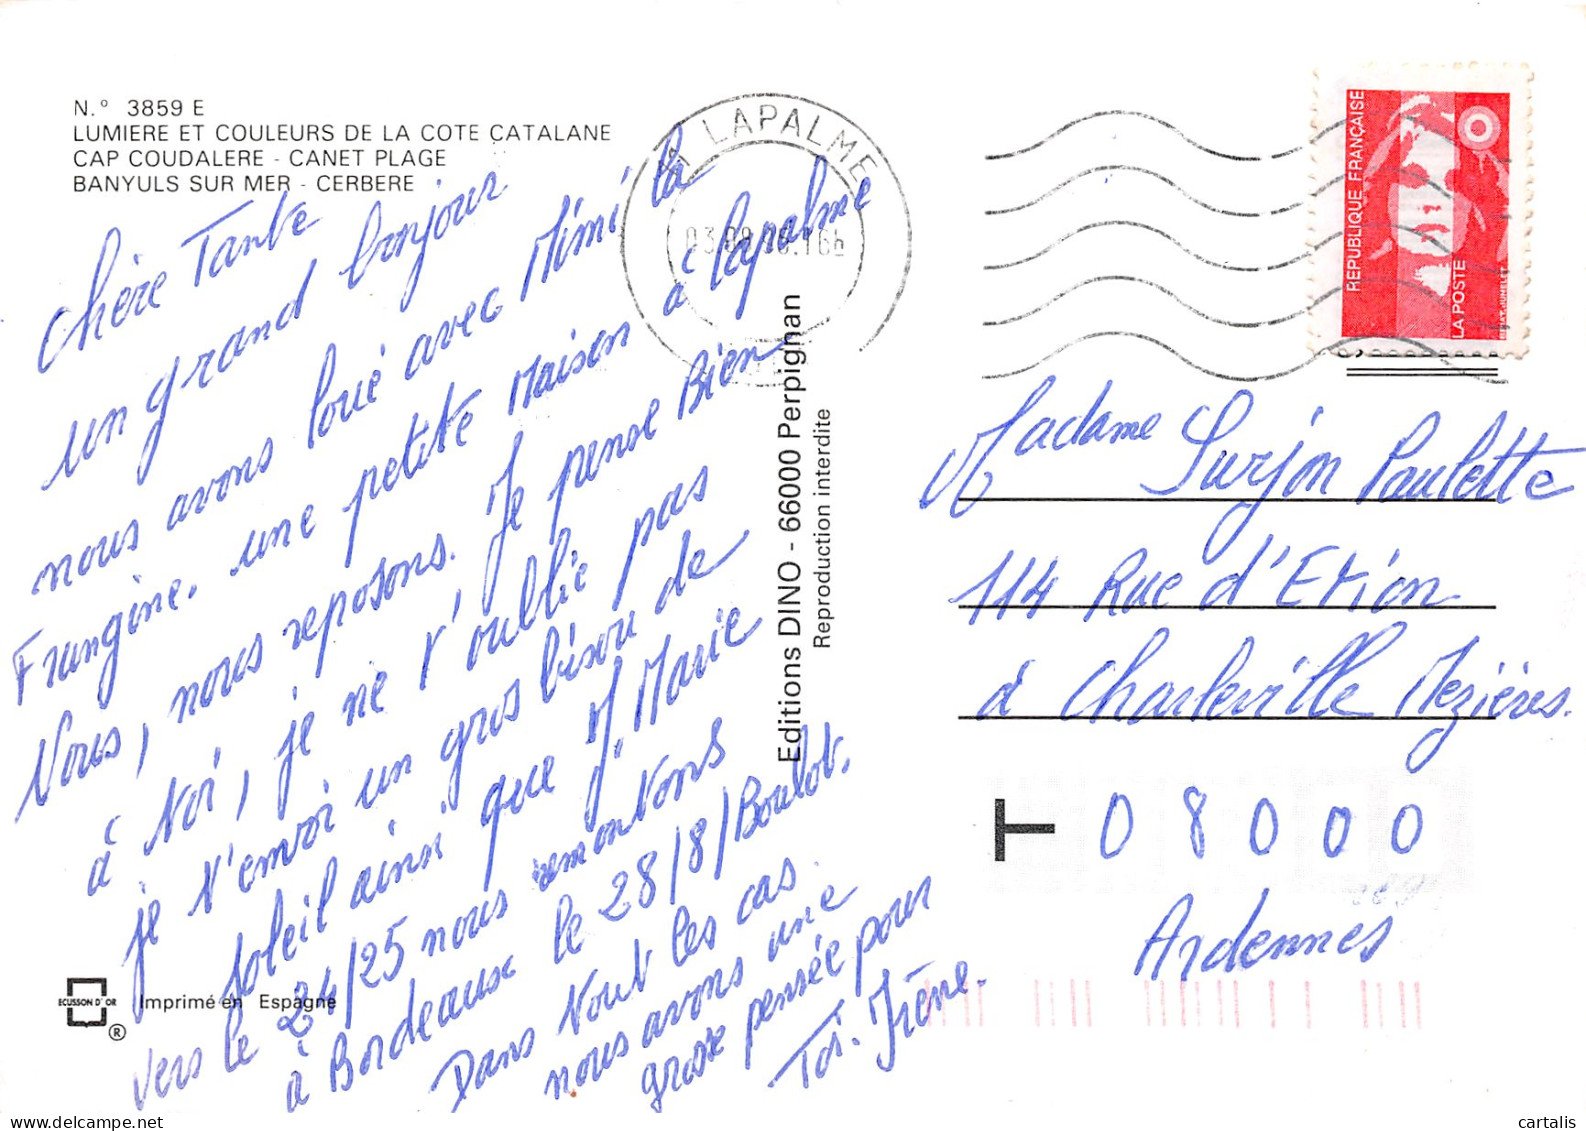 N.° 3859 E
LUMIERE ET COULEURS DE LA COTE CATALANE
CAP COUDALERE - CANET PLAGE
BANYULS SUR MER - CERBERE
Chère Tante
un grand bonjour
nous avons loué avec Mimi la
Frangine. une petite maison à Lapalme
Nous, nous reposons. Je pense Bien
à toi, je ne t'oublie pas
je t'envoi un gros bisou de
soleil ainsi que J. Marie
vers le 24/25 nous remontons
à Bordeaux le 28/8/Boulot.
Dans tout les cas.
nous avons une
grosse pensée pour
Toi. Irène.
ECUSSON D'OR
®
Imprimé en Espagne
Editions DINO - 66000 Perpignan
Reproduction interdite
LAPALME
REPUBLIQUE FRANÇAISE
LA POSTE
Madame Surjon Paulette
114 Rue d'Etion
à Charleville Mezières.
T 08000
Ardennes
cartalis